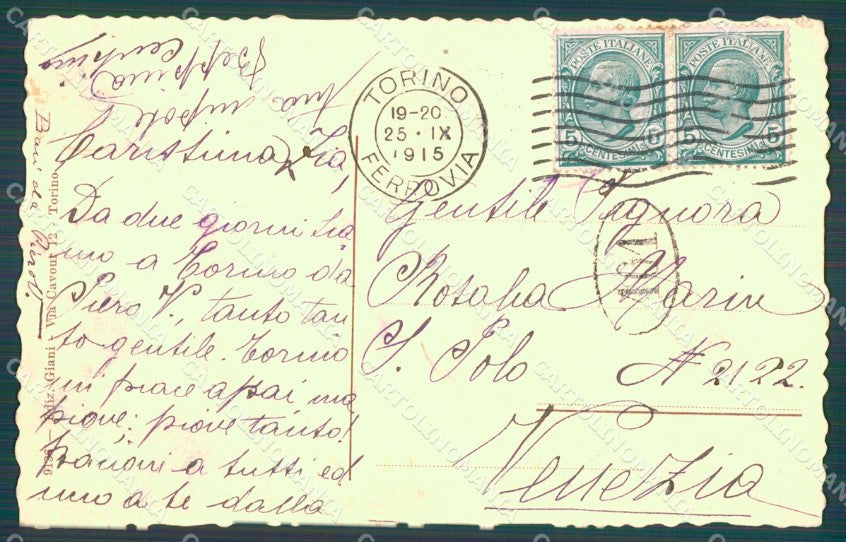 Carissima Zia,
Da due giorni sia
mo a Torino da
Piero V., tanto tan
to gentile. Torino
mi piace assai ma
piove: piove tanto!
Bacioni a tutti ed
uno a te dalla
tua nipote
Beppina
Baci da
Gentile Signora
Rosalia Marin
S. Polo N 2122.
Venezia
TORINO
19-20
25 · IX
1915
FERROVIA
POSTE ITALIANE
5 CENTESIMI 5
POSTE ITALIANE
5 CENTESIMI 5
Ediz. Giani - Via Cavour 12 - Torino
CARTOLINOMANIA